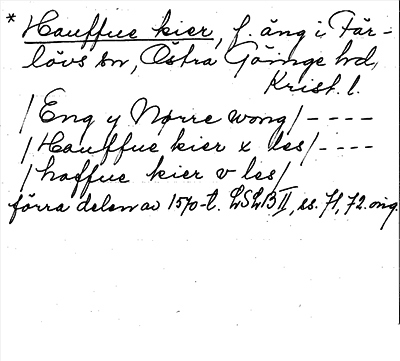 * Hauffue kier, f. äng i Fär-
lövs sn, Östra Göinge hd,
Krist. l.
/Eng y Norre wong/----
/Hauffue kier x les/----
/haffue kier v les/
förra delen av 1570-t. LSLB II, ss. 71, 72. orig.